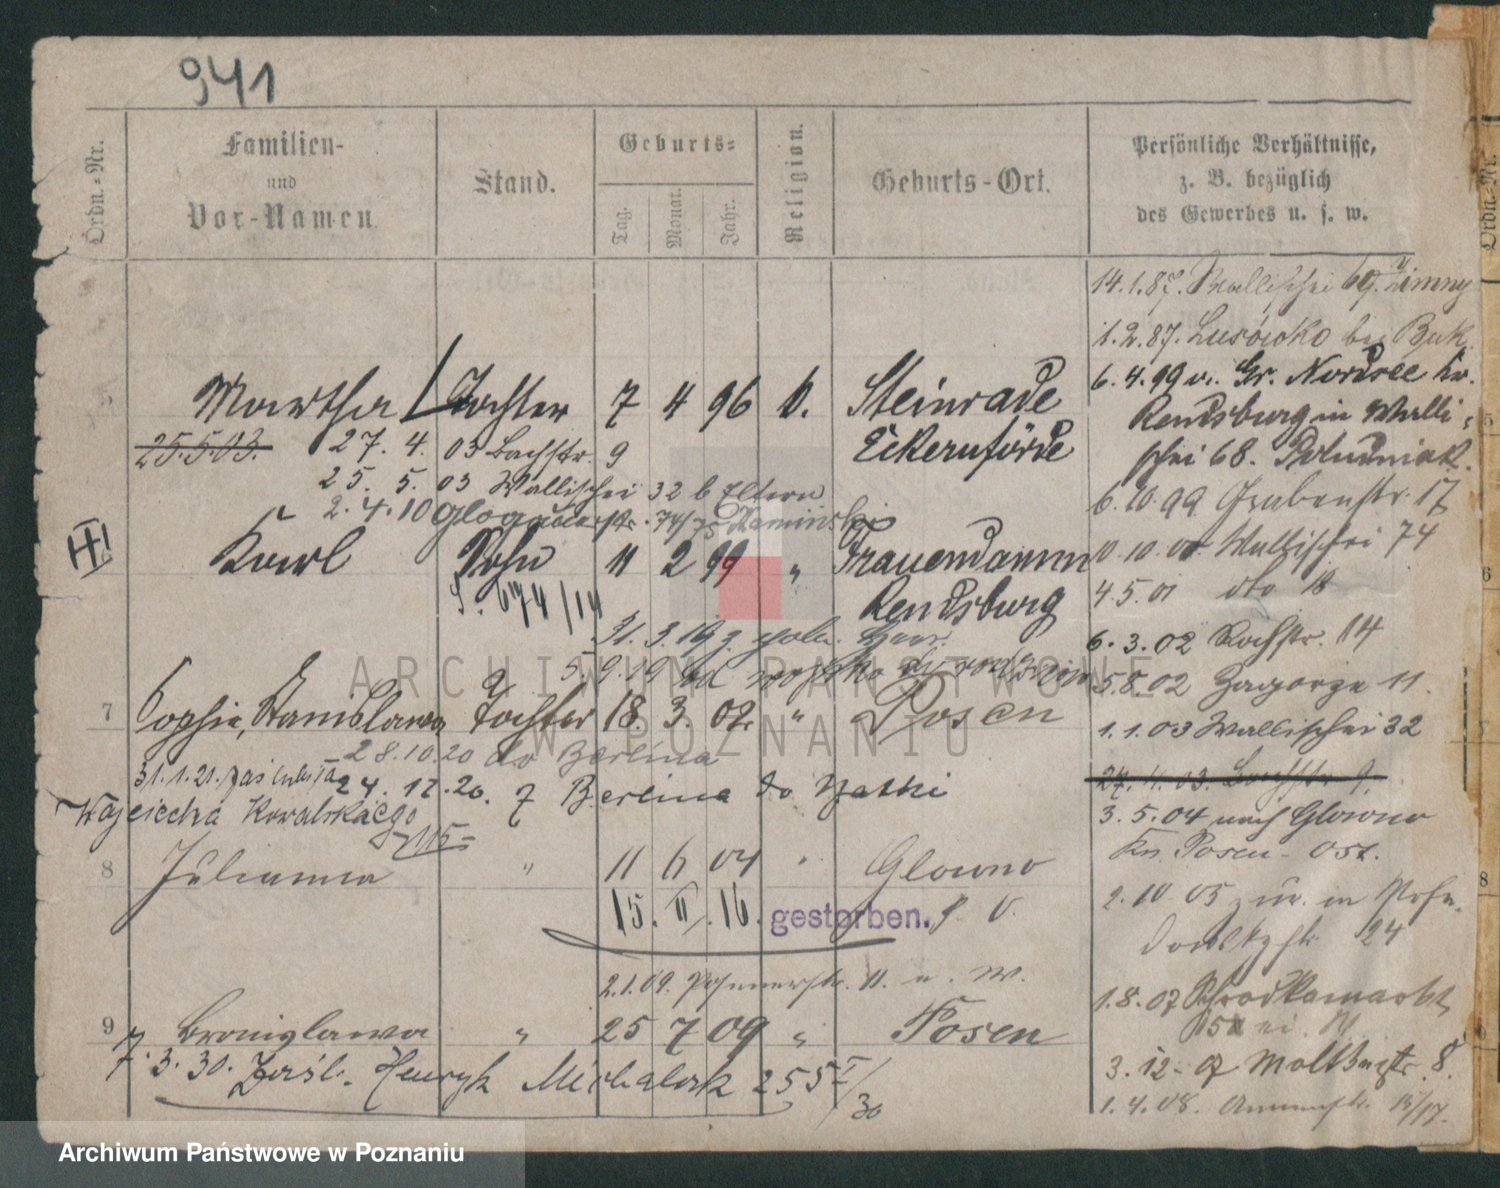 941
Ordn.-Nr.
Familien-
und
Vor-Namen
Stand.
Geburts-
Tag.
Monat.
Jahr.
Religion.
Geburts-Ort.
Persönliche Verhältnisse,
z. B. bezüglich
des Gewerbes u. s. w.
Ordn.-Nr.
14.1.87. Wallischei 69. Zimny
1.2.87. bei Buk
5 Martha Tochter 7 4 96 k. Steinrade
Eckernförde
6.4.99 v. Gr. Nordsee Kr.
Rendsburg in Walli-
schei 68. Poludniak.
25.5.03. 27. 4. 03 Bachstr. 9
25. 5. 03 Wallischei 32 b Eltern
2.4.10 Glogauerstr. 74/75 Kaminski
6.10.99 Grabenstr. 17
Karl Sohn 11 2 99 " Frauendamm
Rendsburg
10.10.00 Wallischei 74
4.5.01 dto 18
S. 674/14
31.3.19
5.9.19
6.3.02 Rochstr. 14
5.8.02 Zagorze 11.
7 Sophie, Stanislawa Tochter 18. 3. 02 " Posen
1.1.03 Wallischei 32
28.10.20 do Berlina
31.1.21.
24.12.20. z Berlina do Matki
Wojciecha Kowalskiego
27.4.03. Bachstr. 9.
3.5.04 nach Glowno
Kr. Posen-Ost.
8 Julianna " 11 6 04 " Glowno
15. II. 16. gestorben.
2.10.05 zur. in Posen.
24
2.1.09. 11. n. W.
1.8.07 Schrodkamarkt
9 Bronislawa " 25 7 09 " Posen
7.3.30. Zaśl. Henryk Michalak 255 I/30
3.12.07 Moltkestr. 8.
1.4.08. 15/17.
ARCHIWUM PAŃSTWOWE
W POZNANIU
Archiwum Państwowe w Poznaniu